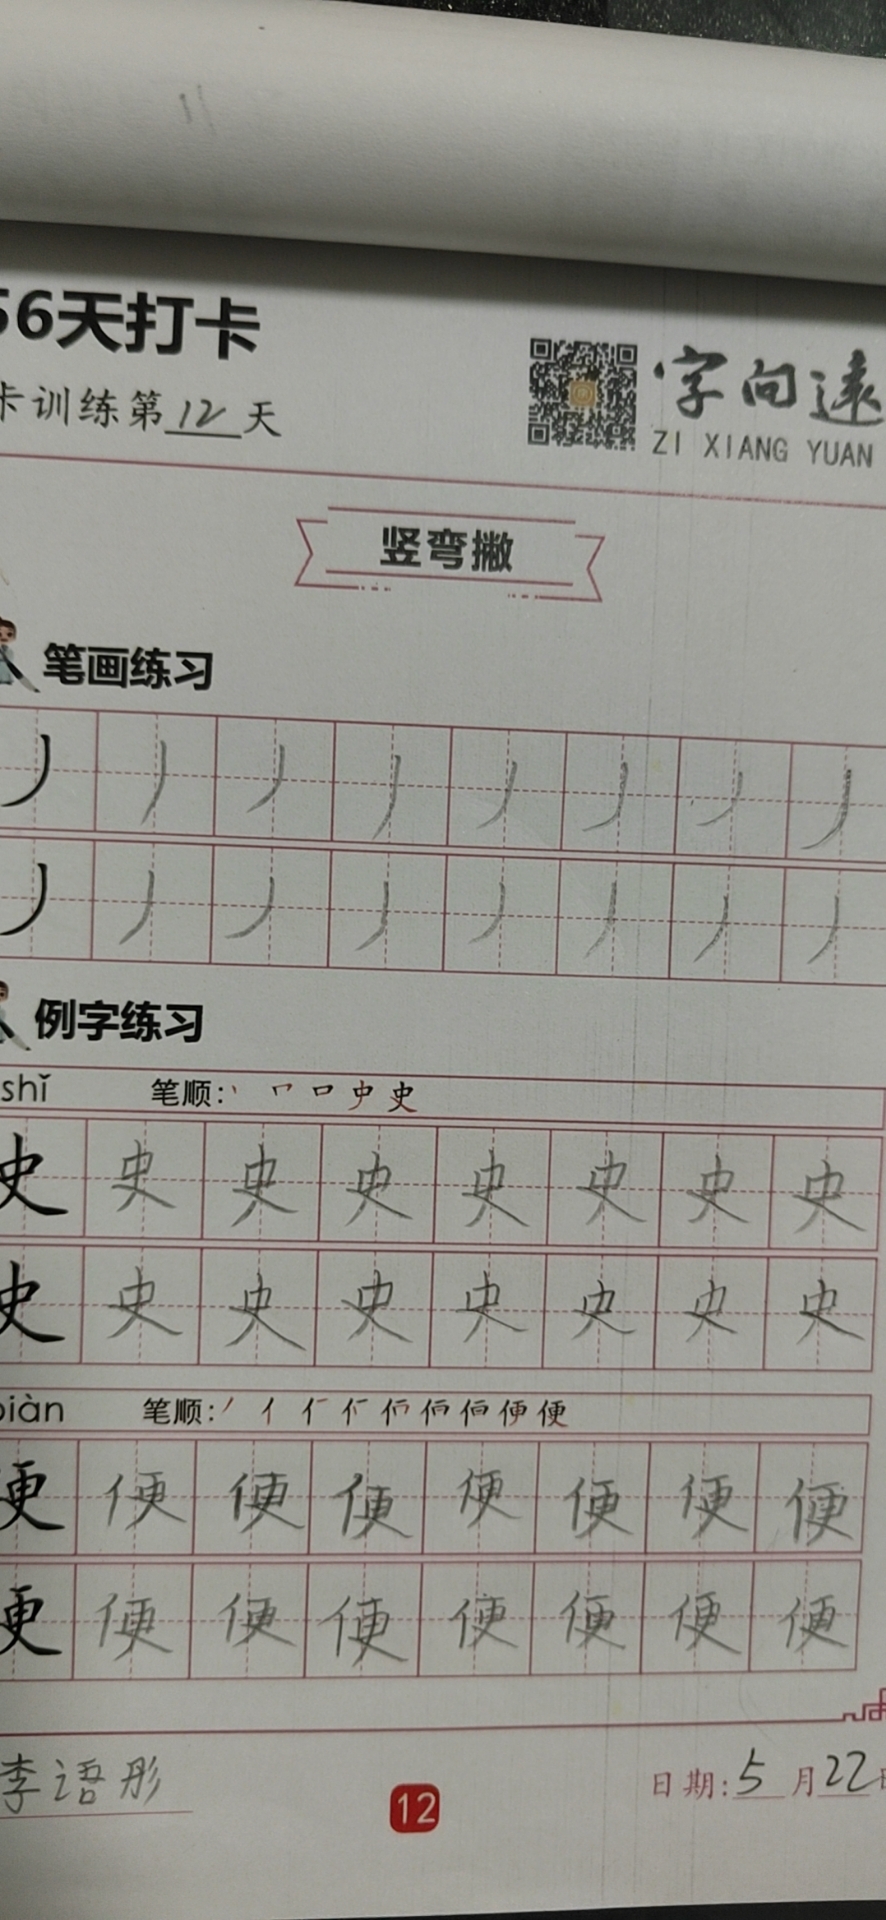 56天打卡
卡训练第12天
字向远
ZI XIANG YUAN
竖弯撇
笔画练习
丿 丿 丿 丿 丿 丿 丿 丿
丿 丿 丿 丿 丿 丿 丿 丿
例字练习
shǐ 笔顺: 丶 口 史
史 史 史 史 史 史 史 史
史 史 史 史 史 史 史 史
biàn 笔顺: 丿 亻 便
便 便 便 便 便 便 便 便
便 便 便 便 便 便 便 便
李语彤
12
日期: 5 月 22 日